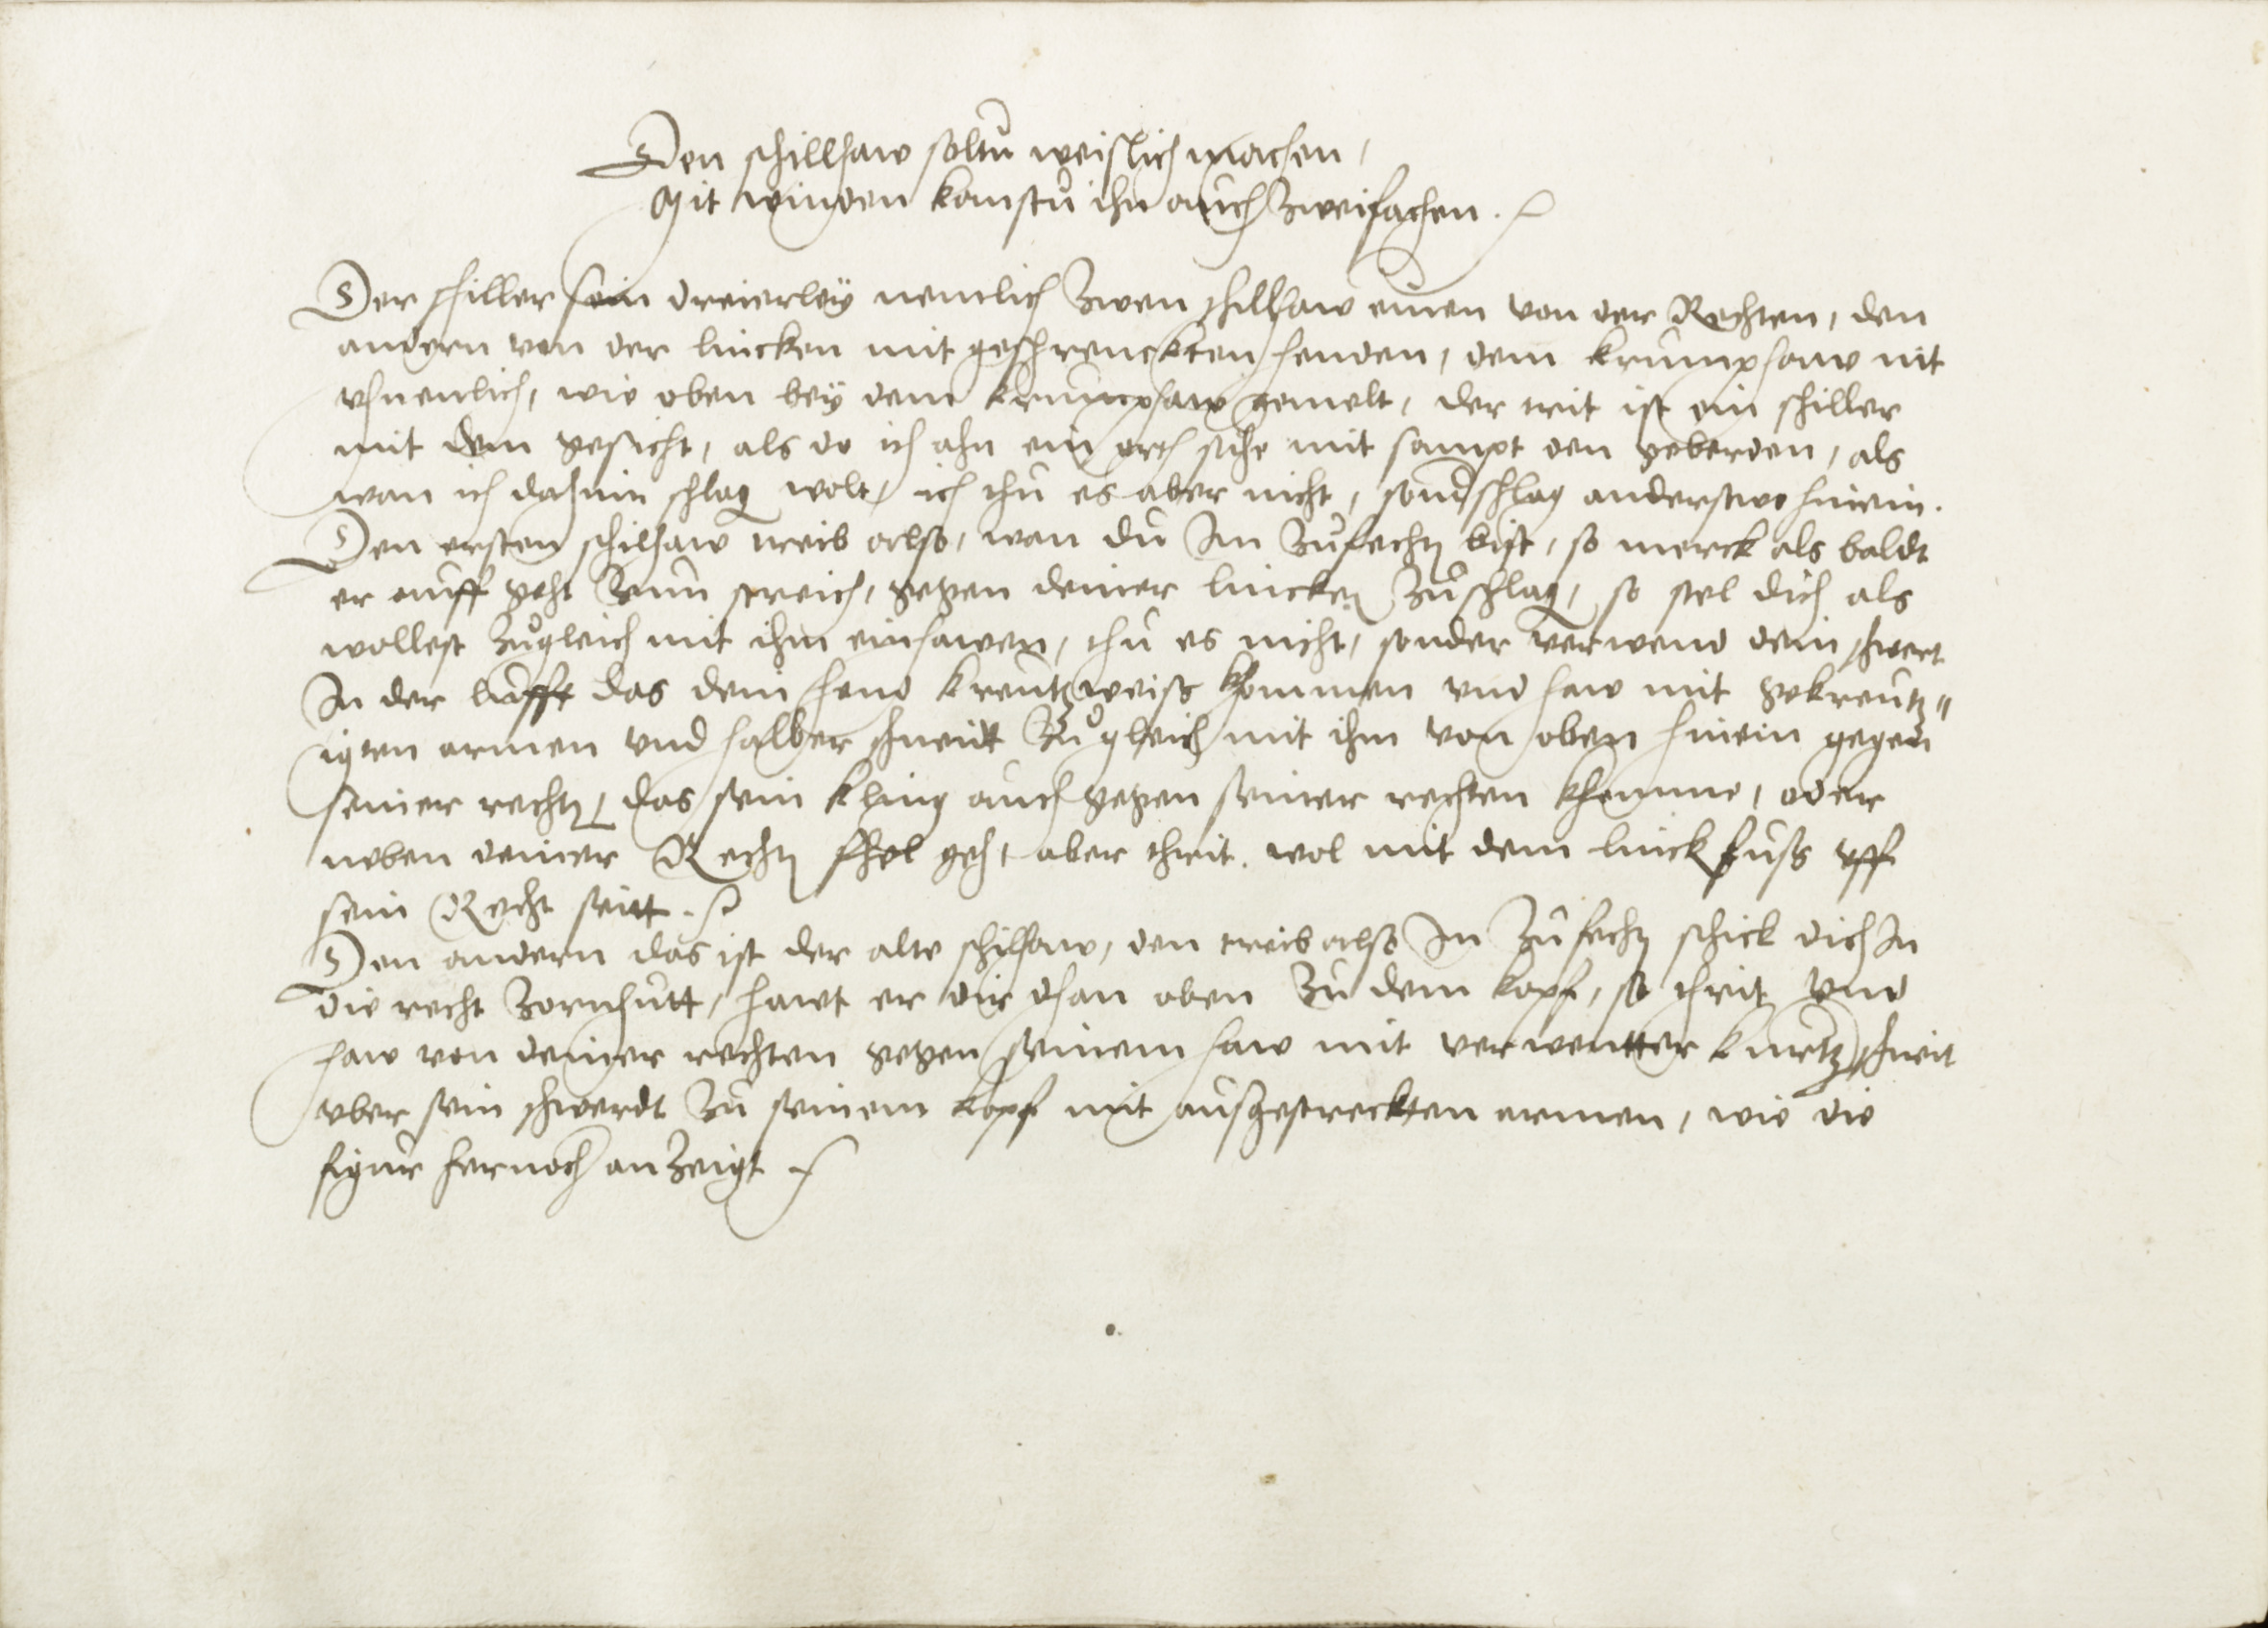 Den schillhaw soltu weislich machen,
Mit winden kanstu ihn auch Zweifachen.
Der schiller sein dreierley nemlich Zwen schillhaw einen von der Rechten, den
andern von der lincken mit geschrenckten henden, dem krumphaw nit
vhnenlich, wie oben bey dem krumphaw gemelt, der drit ist ein schiller
mit dem gesicht, als do ich ahn ein orth sihe mit sampt den geberden, als
wan ich dahinn schlag wolt, ich thu es aber nicht, sond schlag anderstwo hinein.
Den ersten schilhaw treib also, wan du Im Zufechtn bist, so merck als baldt
er auff geht Zum streich, gegen deiner lincken Zuschlag, so stel dich als
wollest Zugleich mit ihm einhawen, thu es nicht, sonder verwend dein schwert
In der lufft das dein hend kreutzweiss khommen vnd haw mit gekreutz"
igten armen vnd halber schneidt Zugleich mit ihm von oben hinein gegen
seiner rechtn, das sein kling auch gegen seiner rechten khomme, oder
neben deiner Rechtn fhel geh, aber thrit. wol mit dem linck fuss vff
sein Recht seitt.
Den andern das ist der alte schilhaw, den treib also Im Zufechtn schick dich In
die recht Zornhutt, hawt er dir dhan oben Zu dem kopf, so thrit vnd
haw von deiner rechten gegen seinem haw mit verwentter kurtz schneit
vber sein schwerdt Zu seinem kopf mit ausgestreckten armen, wie die
figur hernoch anZeigt